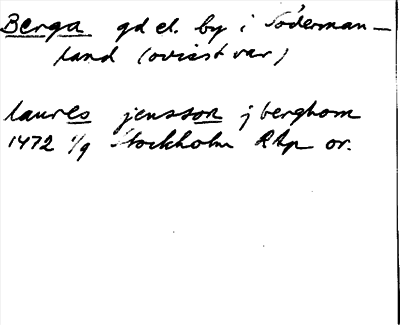 Berga gd el. by i Söderman-
land (ovisst var)
laures jensson j berghom
1472 1/9 Stockholm RAp or.